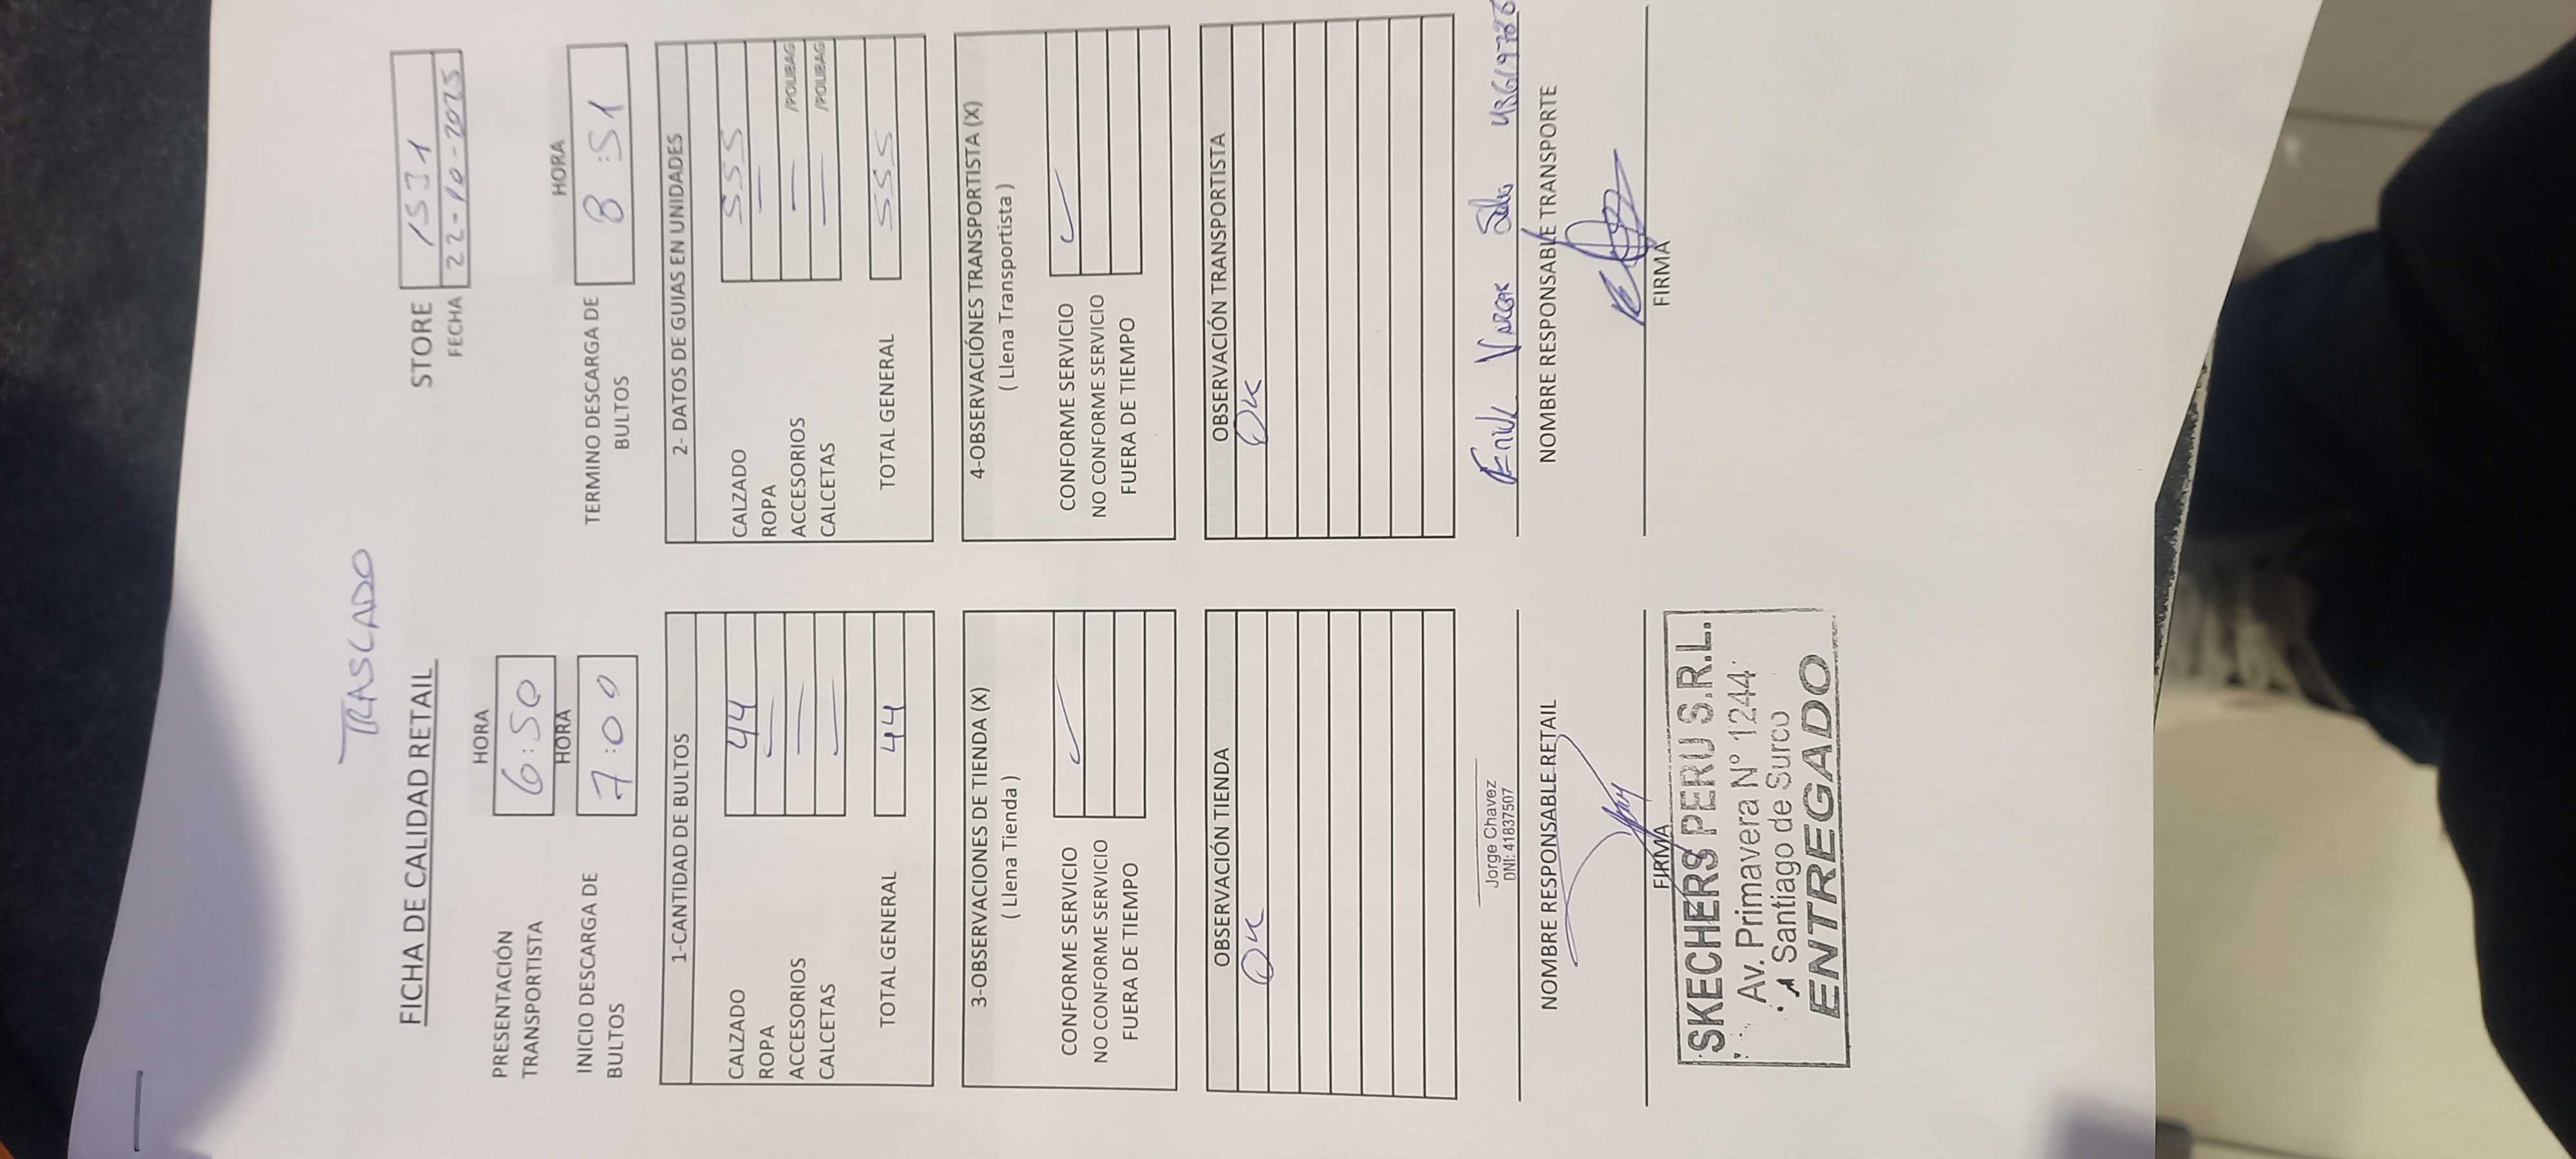 TRASLADO
FICHA DE CALIDAD RETAIL
STORE 1531
FECHA 22-10-2025
HORA
PRESENTACIÓN TRANSPORTISTA 6:50
HORA
INICIO DESCARGA DE BULTOS 7:00
HORA
TERMINO DESCARGA DE BULTOS 8:51
1-CANTIDAD DE BULTOS
CALZADO 44
ROPA —
ACCESORIOS —
CALCETAS —
TOTAL GENERAL 44
2- DATOS DE GUIAS EN UNIDADES
CALZADO 555
ROPA —
ACCESORIOS — /POLIBAG
CALCETAS — /POLIBAG
TOTAL GENERAL 555
3-OBSERVACIONES DE TIENDA (X)
( Llena Tienda )
CONFORME SERVICIO ✓
NO CONFORME SERVICIO
FUERA DE TIEMPO
4-OBSERVACIÓNES TRANSPORTISTA (X)
( Llena Transportista )
CONFORME SERVICIO ✓
NO CONFORME SERVICIO
FUERA DE TIEMPO
OBSERVACIÓN TIENDA
OK
OBSERVACIÓN TRANSPORTISTA
OK
Jorge Chavez
DNI: 41837507
NOMBRE RESPONSABLE RETAIL
FIRMA
Vargas
NOMBRE RESPONSABLE TRANSPORTE
FIRMA
SKECHERS PERU S.R.L.
Av. Primavera N° 1244
Santiago de Surco
ENTREGADO